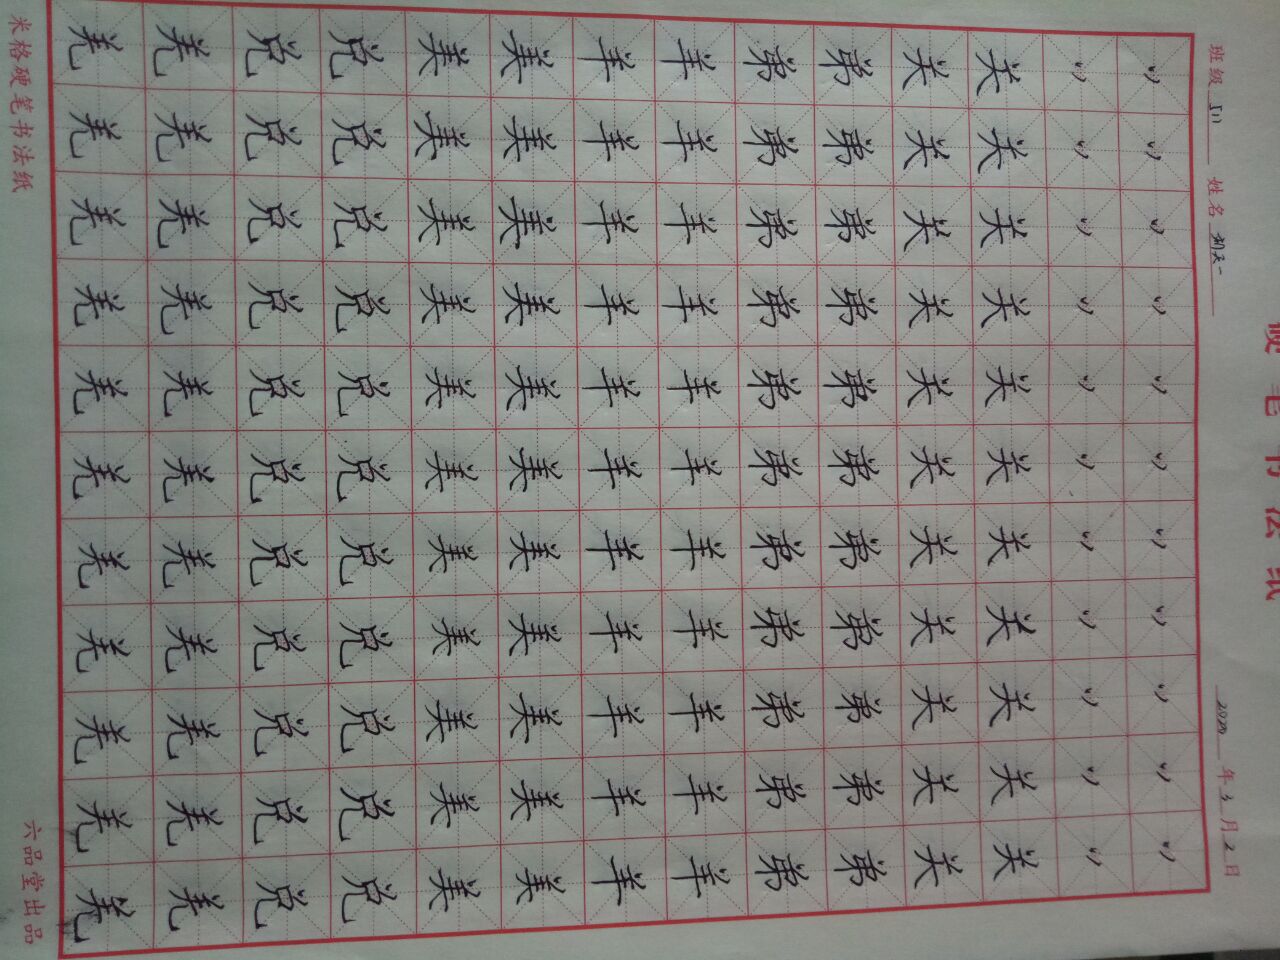 硬笔书法纸
班级 姓名 天一 2020年3月2日
丷丷丷丷丷丷丷丷丷丷丷
丷丷丷丷丷丷丷丷丷丷丷
关关关关关关关关关关关
关关关关关关关关关关关
弟弟弟弟弟弟弟弟弟弟弟
弟弟弟弟弟弟弟弟弟弟弟
羊羊羊羊羊羊羊羊羊羊羊
羊羊羊羊羊羊羊羊羊羊羊
美美美美美美美美美美美
美美美美美美美美美美美
兑兑兑兑兑兑兑兑兑兑兑
兑兑兑兑兑兑兑兑兑兑兑
羌羌羌羌羌羌羌羌羌羌羌
羌羌羌羌羌羌羌羌羌羌羌
米格硬笔书法纸 六品堂出品